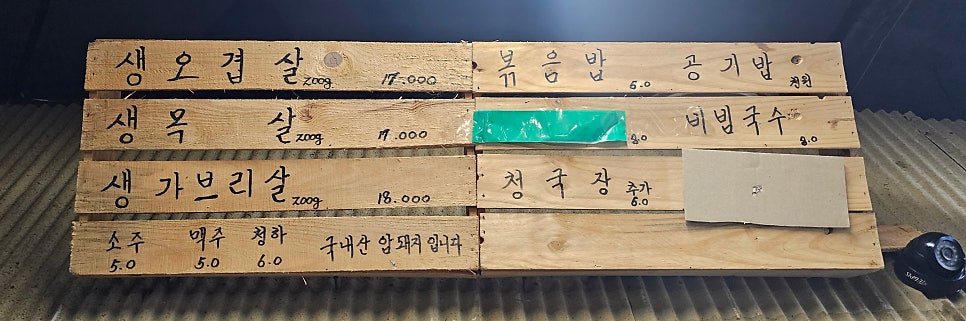 생 오겹 살 200g 17.000
생 목 살 200g 17.000
생 가브리살 200g 18.000
소주 맥주 청하 국내산 암돼지입니다
5.0 5.0 6.0
볶음밥 5.0 공기밥 천원
8.0 비빔국수 8.0
청국장 추가 6.0